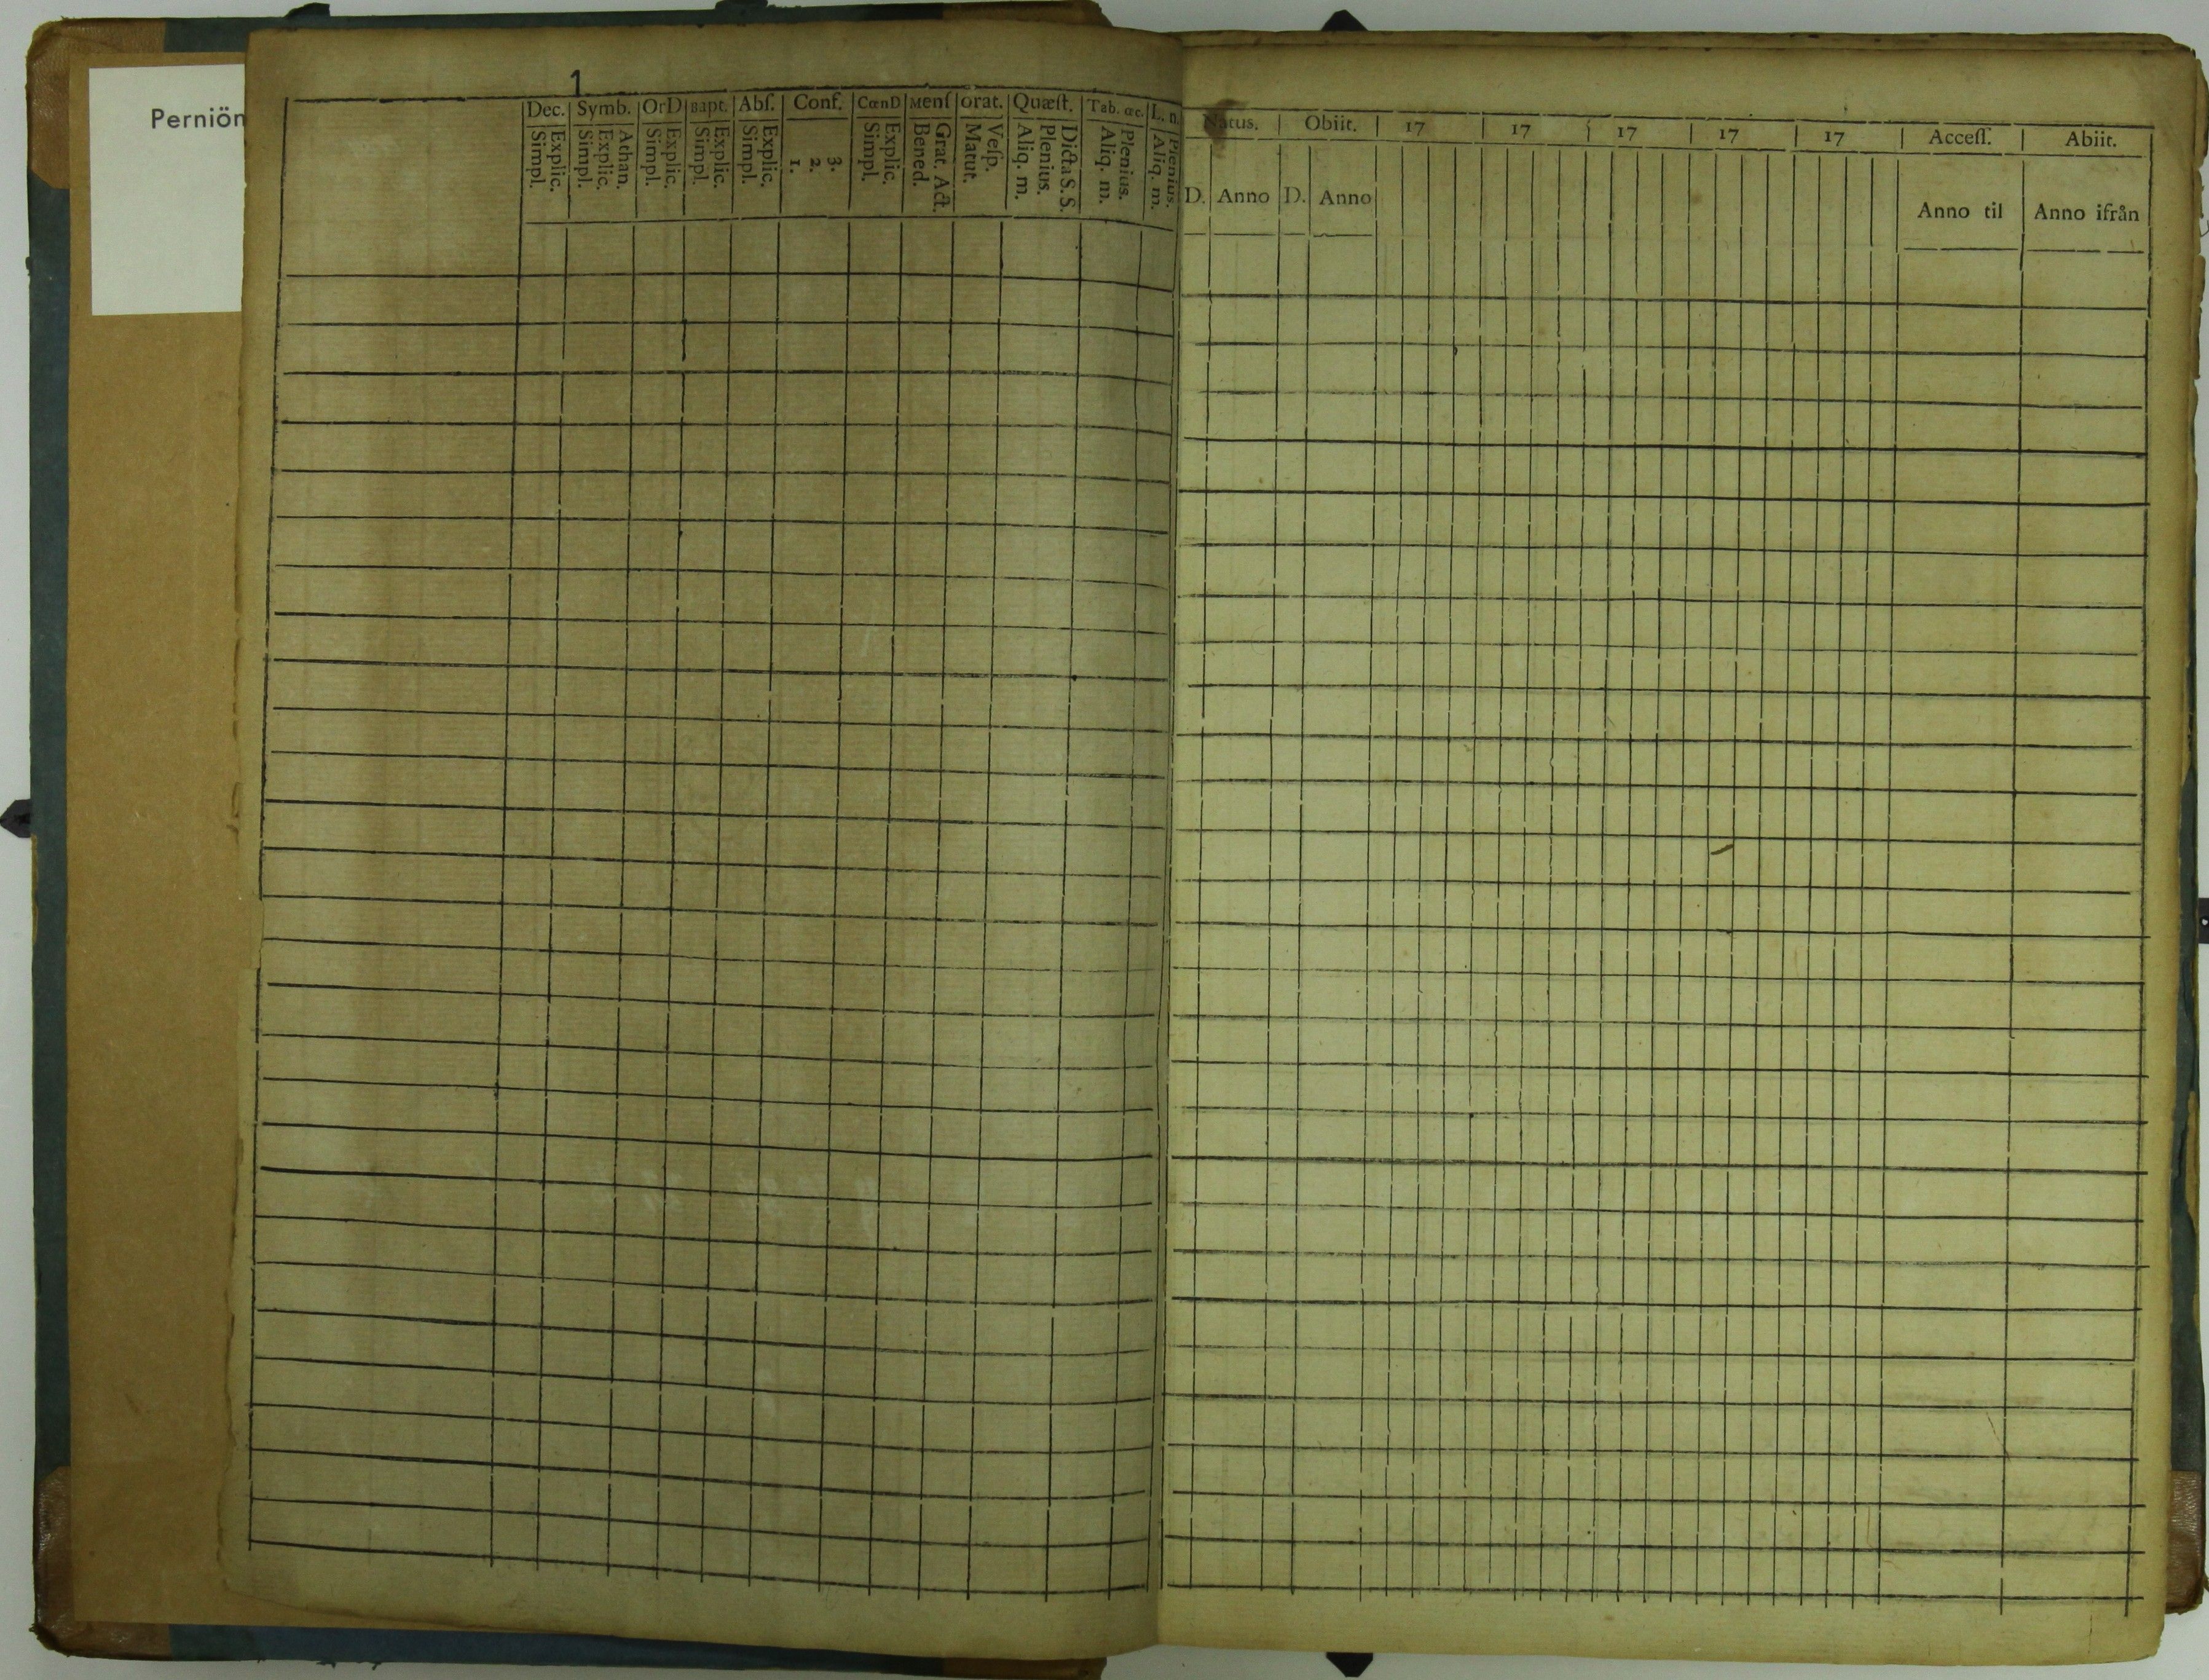 Perniön
1
Dec. Symb. OrD Bapt. Abſ. Conf. CœnD Menſ Orat. Quæſt. Tab. œc. L. n.
Simpl. Explic. Simpl. Explic. Athan. Simpl. Explic. Simpl. Explic. Simpl. Explic. 1. 2. 3. Simpl. Explic. Bened. Grat. Act. Matut. Veſp. Aliq. m. Plenius. Dicta S. S. Aliq. m. Plenius. Aliq. m. Plenius.
Natus. Obiit. 17 17 17 17 17 Acceſſ. Abiit.
D. Anno D. Anno Anno til Anno ifrån